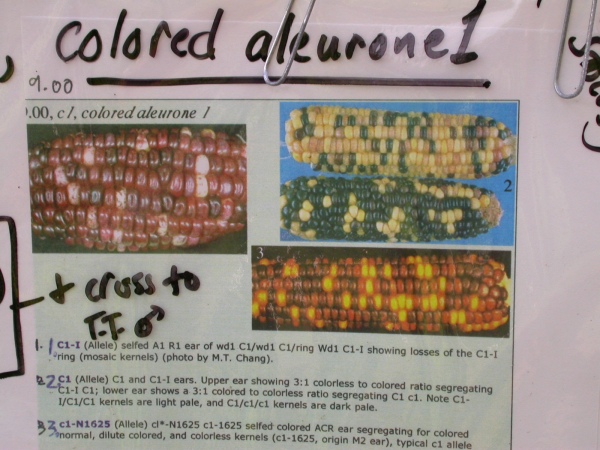 colored aleurone1
9.00
.00, c1, colored aleurone 1
2
3
+ cross to
T.T ♂
1. 1 C1-I (Allele) selfed A1 R1 ear of wd1 C1/wd1 C1/ring Wd1 C1-I showing losses of the C1-I
ring (mosaic kernels) (photo by M.T. Chang).
2 2 C1 (Allele) C1 and C1-I ears. Upper ear showing 3:1 colorless to colored ratio segregating
C1-I C1; lower ear shows a 3:1 colored to colorless ratio segregating C1 c1. Note C1-
I/C1/C1 kernels are light pale, and C1/c1/c1 kernels are dark pale.
3 3 c1-N1625 (Allele) cl*-N1625 c1-1625 selfed colored ACR ear segregating for colored
normal, dilute colored, and colorless kernels (c1-1625, origin M2 ear), typical c1 allele